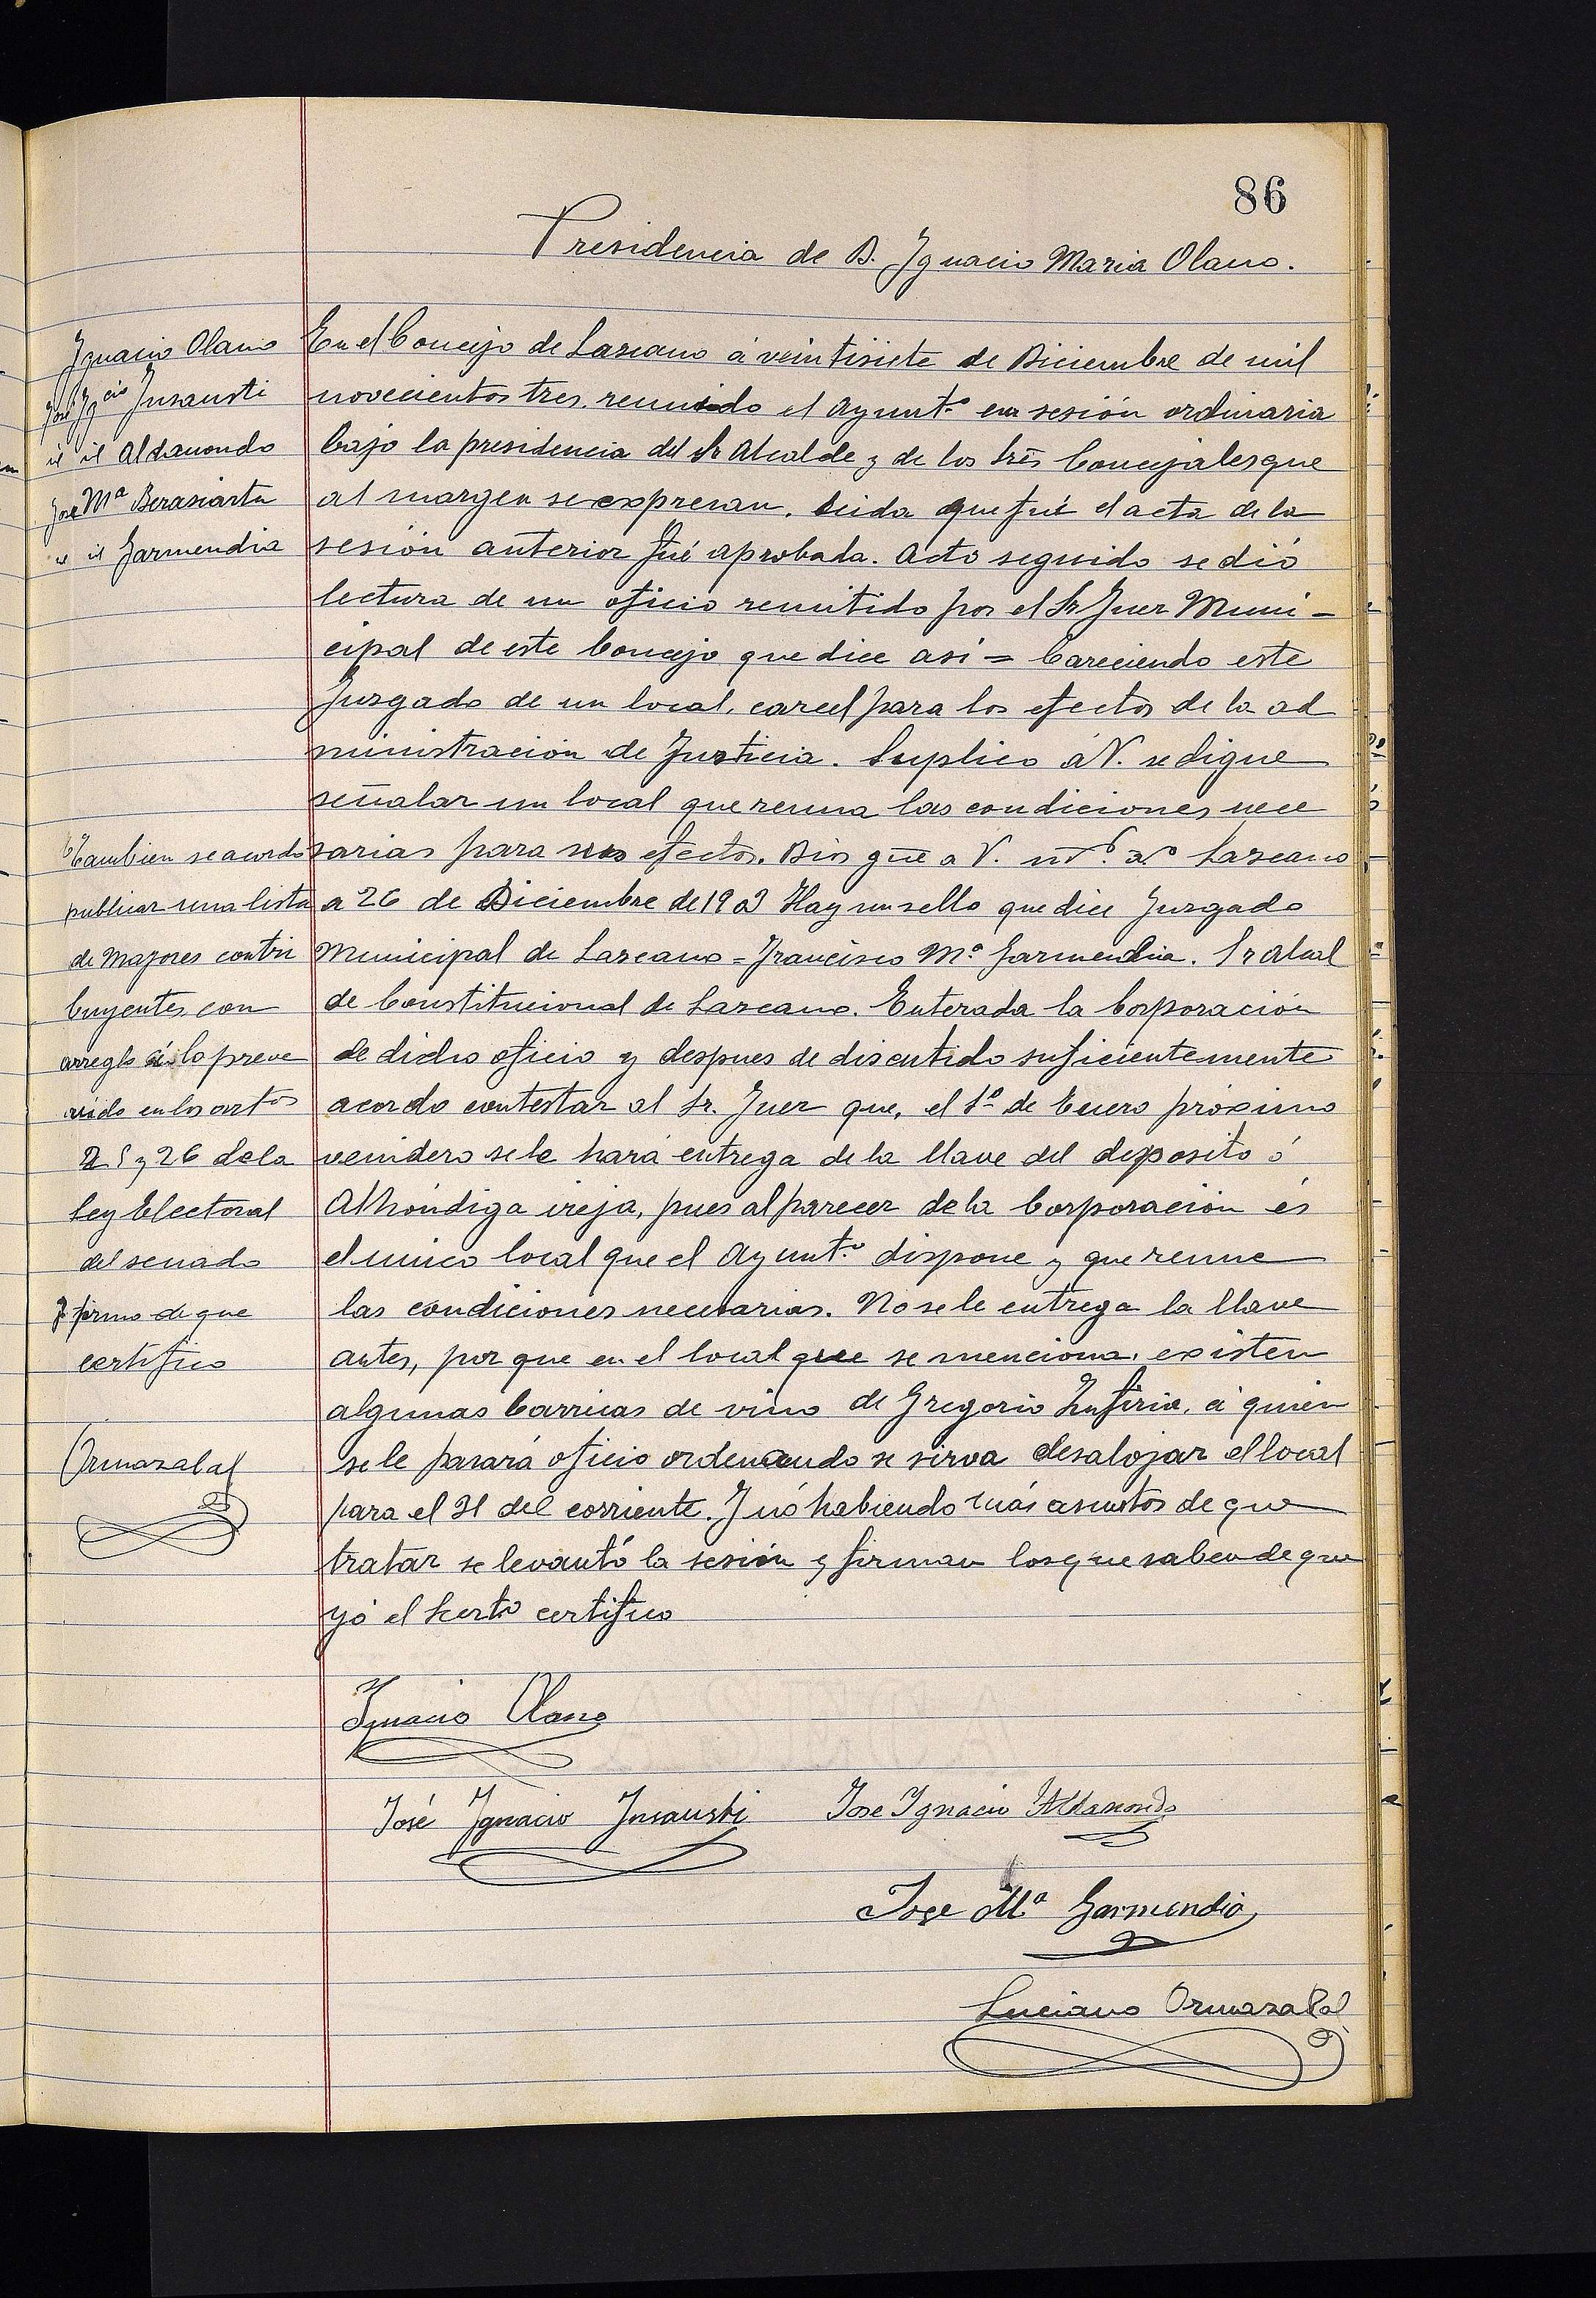 86
Presidencia de D. Ygnacio Maria Olano.
Ygnacio Olano
José Ygcio Ynsausti
id id Aldanondo
José Mª Berasiartu
id id Garmendia
En el Concejo de Lazcano á veintisiete de Diciembre de mil
novecientos tres, reunido el Ayuntº en sesión ordinaria
bajo la presidencia del Sr Alcalde y de los Sres Concejales que
al margen se expresan. Leida que fué el acta de la
sesión anterior fué aprobada. Acto seguido se dió
lectura de un oficio remitido por el Sr Juez Muni-
cipal de este Concejo que dice asi = Careciendo este
Juzgado de un local, carcel para los efectos de la ad
ministración de Justicia. Suplico á V. se digne
señalar un local que reuna las condiciones nece
sarias para sus efectos. Dios gue a V. mº aº Lazcano
a 26 de Diciembre de 1903 Hay un sello que dice Juzgado
Municipal de Lazcano = Francisco Mº Garmendia. Sr Alcal
de Constitucional de Lazcano. Enterada la Corporación
de dicho oficio y despues de discutido suficientemente
acordo contestar al Sr. Juez que, el 1º de Enero próximo
venidero se le hará entrega de la llave del deposito ó
Alhóndiga vieja, pues al parecer de la Corporación és
el unico local que el Ayuntº dispone y que reune
las condiciones necesarias. No se le entrega la llave
antes, por que en el local que se menciona, existen
algunas barricas de vino de Gregorio Zufiria, á quien
se le pasará oficio ordenando se sirva desalojar el local
para el 31 del corriente. Y nó habiendo más asuntos de que
tratar se levantó la sesión y firman los que saben de que
yó el Scertº certifico
Tambien se acordo
publicar una lista
de mayores contri
buyentes con
arreglo á lo preve
nido en los artos
25 y 26 de la
Ley Electoral
del senado
y firmo de que
certifico
Ormazabal
Ignacio Olano
José Ygnacio Ynsausti
Jose Ygnacio Aldanondo
Jose Mª Garmendia
Luciano Ormazabal